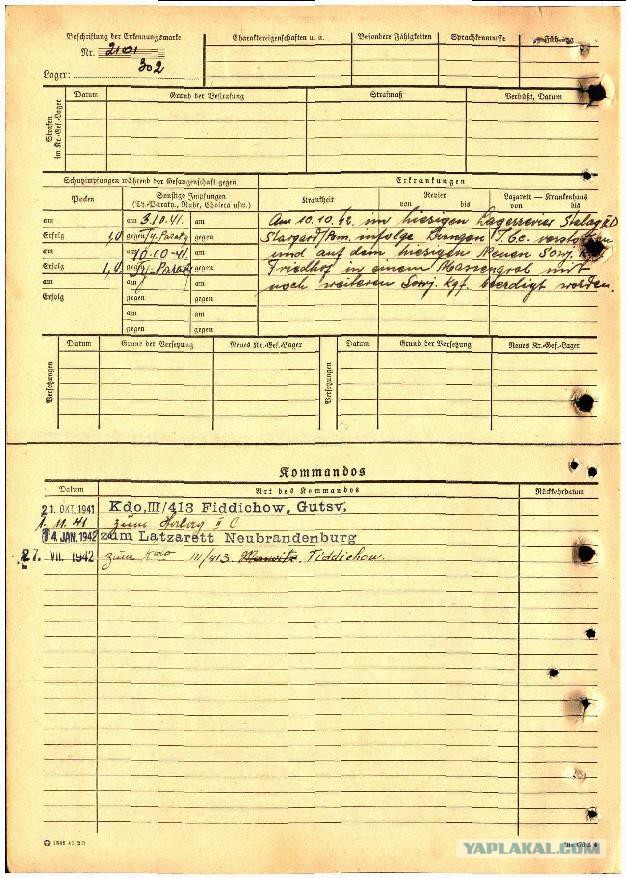 Beschriftung der Erkennungsmarke
Nr.
302
Lager:
Charaktereigenschaften u. a.
Besondere Fähigkeiten
Sprachkenntnisse
Datum
Grund der Bestrafung
Strafmaß
Verbüßt, Datum
Strafen
im Kr.-Gef.-Lager
Schutzimpfungen während der Gefangenschaft gegen
Erkrankungen
Pocken
Sonstige Impfungen
(Ty.-Paraty., Ruhr, Cholera usw.)
Krankheit
Revier
von bis
Lazarett — Krankenhaus
von bis
am
am 3.10.41.
am
Erfolg
1,0 gegen Ty.-Paraty
gegen
am
am 10.10.41.
am
Erfolg
1,0 gegen Ty-Paraty
gegen
am
am
am
Erfolg
gegen
gegen
am
am
gegen
gegen
Am 10.10.42. im hiesigen Lagerrevier Stalag II D
Stargard/Pom. infolge Lungen T.b.c. verstorben
und auf dem hiesigen Neuen Sowj. Kgf.
Friedhof in einem Massengrab mit
noch weiteren Sowj. Kgf. beerdigt worden.
Versetzungen
Datum
Grund der Versetzung
Neues Kr.-Gef.-Lager
Versetzungen
Datum
Grund der Versetzung
Neues Kr.-Gef.-Lager
Kommandos
Datum
Art des Kommandos
Rückkehrdatum
21. OKT. 1941 Kdo. III/413 Fiddichow, Gutsv.
1. 11. 41 zum II C
14. JAN. 1942 zum Latzarett Neubrandenburg
27. VII. 1942 zum Kdo III/413. Fiddichow.
YAPLAKAL.COM